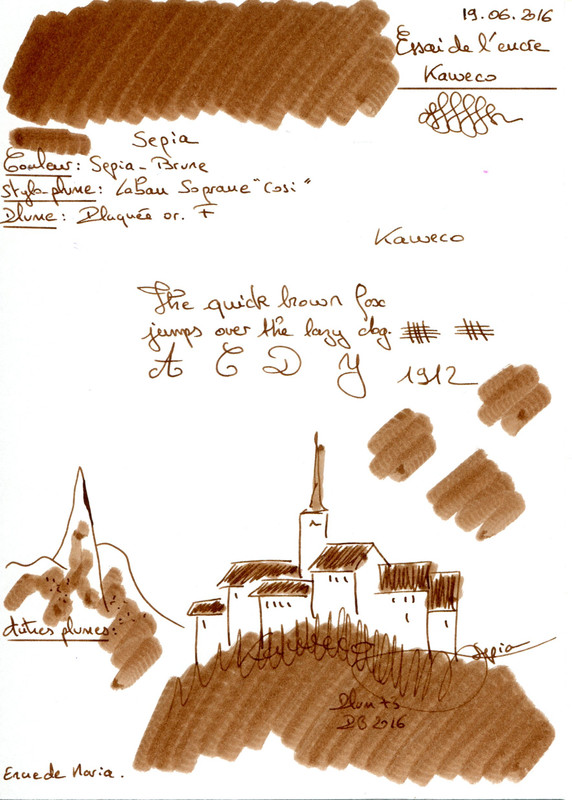 19.06.2016
Essai de l'encre
Kaweco
Sepia
Couleur: Sepia-Brune
Stylo-plume: LaBan Soprane "Cosi"
Plume: Plaquée or. F
Kaweco
The quick brown fox
jumps over the lazy dog.
A C D Y 1912
Autres plumes:
Kaweco
Sepia
Plum 73
DB 2016
Encre de Maria.